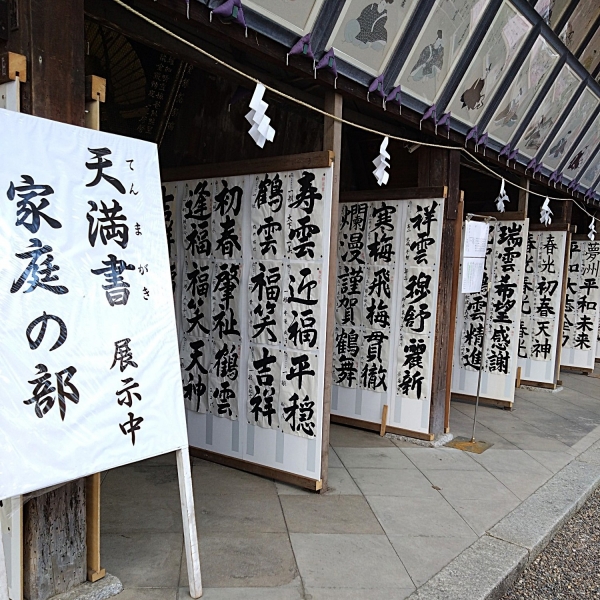 天満書 展示中
てん ま がき
家庭の部
寿雲 近福 平穏
鶴雲 福笑 吉祥
初春 肇祉 鶴雲
逢福 福笑 天神
祥雲 穆舒 麗新
寒梅 飛梅 貫徹
爛漫 謹賀 鶴舞
瑞雲 希望 感謝
精進
初春 天神
春光 春光 春光
夢洲 平和 未来
平和